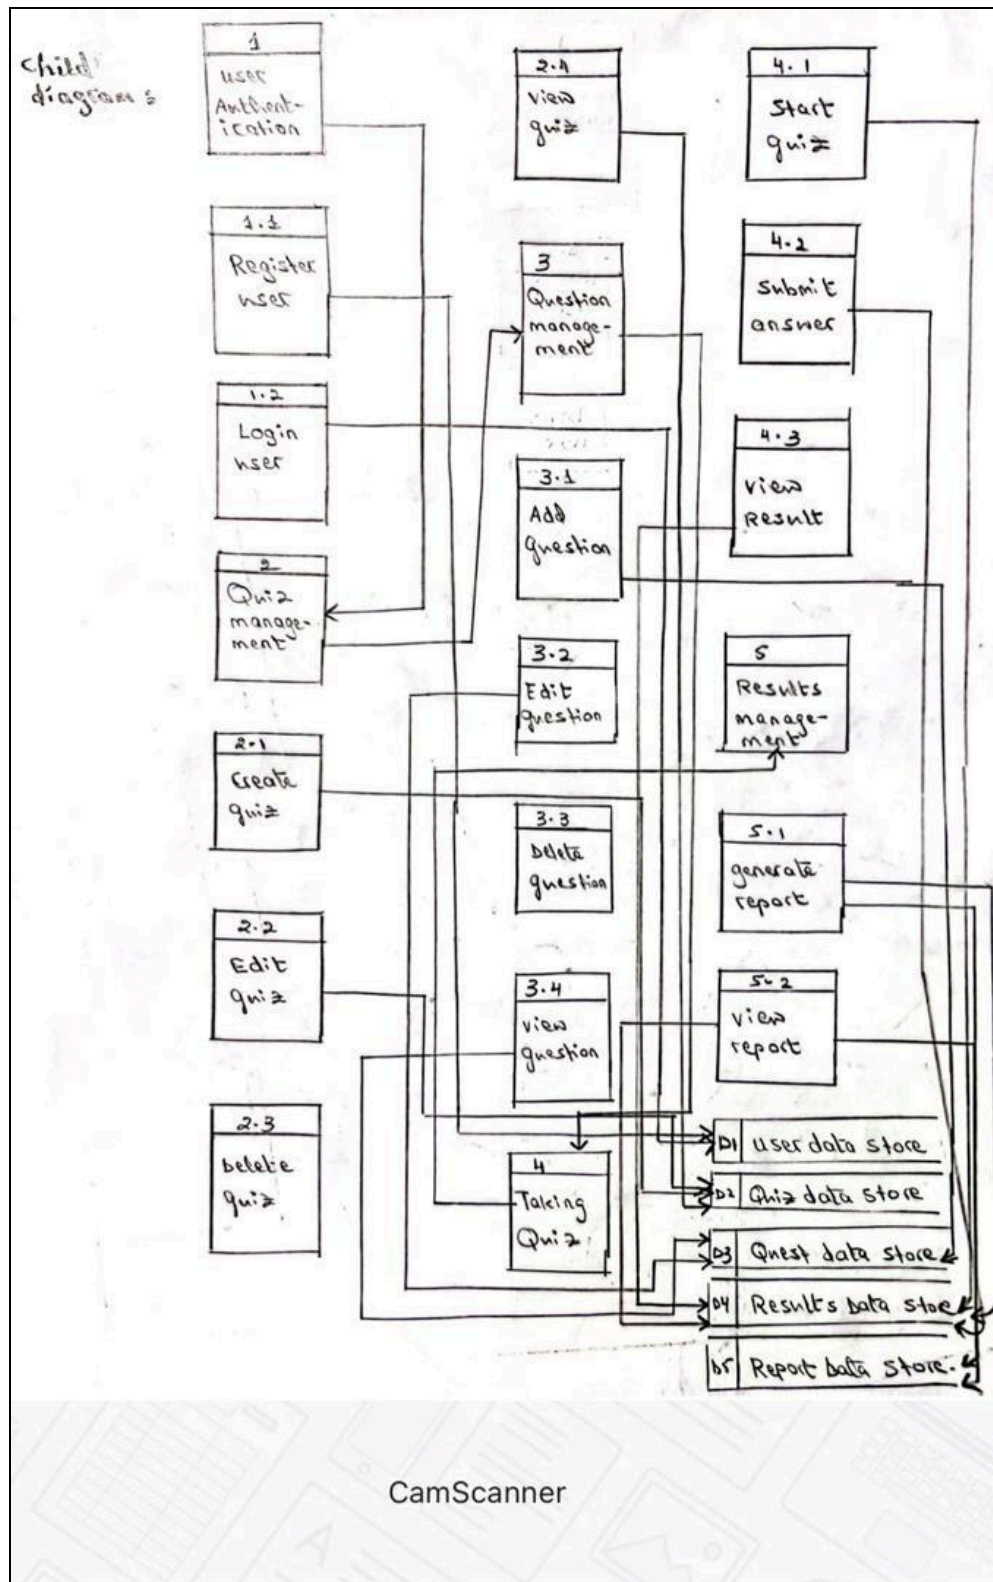 Child
diagram:
1
user
Authent-
ication
1.1
Register
user
1.2
Login
user
2
Quiz
manage-
ment
2.1
Create
quiz
2.2
Edit
quiz
2.3
Delete
quiz
2.4
view
quiz
3
Question
manage-
ment
3.1
Add
question
3.2
Edit
question
3.3
Delete
question
3.4
view
question
4
Taking
Quiz
4.1
Start
quiz
4.2
Submit
answer
4.3
view
Result
5
Results
manage-
ment
5.1
generate
report
5.2
view
report
D1 user data store
D2 Quiz data store
D3 Quest data store
D4 Results Data store
D5 Report Data store.
CamScanner